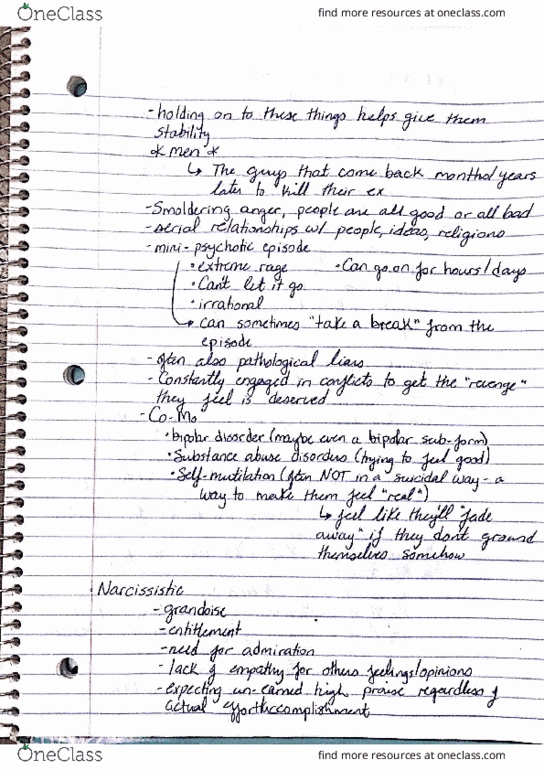 OneClass
find more resources at oneclass.com
- holding on to these things helps give them
stability
* men *
↳ The guys that come back months/years
later to kill their ex
- Smoldering anger, people are all good or all bad
- serial relationships w/ people, ideas, religions
- mini-psychotic episode
• extreme rage • Can go on for hours/days
• Can't let it go
• irrational
→ can sometimes "take a break" from the
episode
- often also pathological liars
- Constantly engaged in conflicts to get the "revenge"
they feel is deserved
- Co-Mo
• bipolar disorder (maybe even a bipolar sub-form)
• Substance abuse disorders (trying to feel good)
• Self-mutilation (often NOT in a suicidal way - a
way to make them feel "real")
↳ feel like they'll "fade
away" if they don't ground
themselves somehow
Narcissistic
- grandoise
- entitlement
- need for admiration
- lack of empathy for others feelings/opinions
- expecting un-earned high praise regardless of
actual effort/accomplishment
OneClass
find more resources at oneclass.com